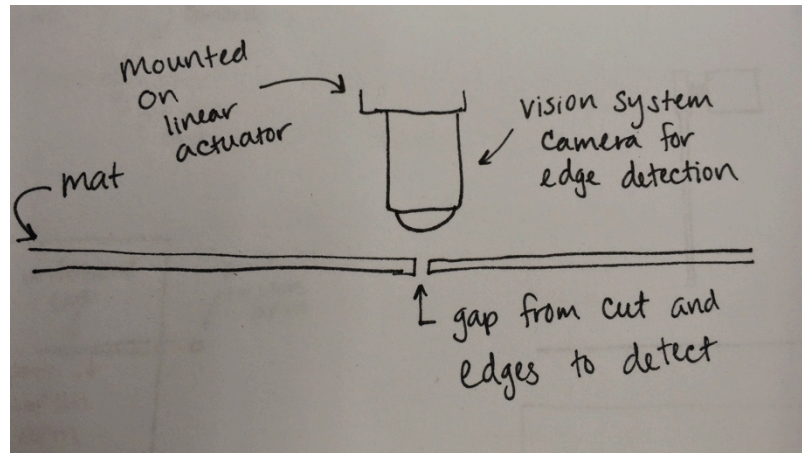 mounted
on
linear
actuator
vision system
camera for
edge detection
mat
gap from cut and
edges to detect